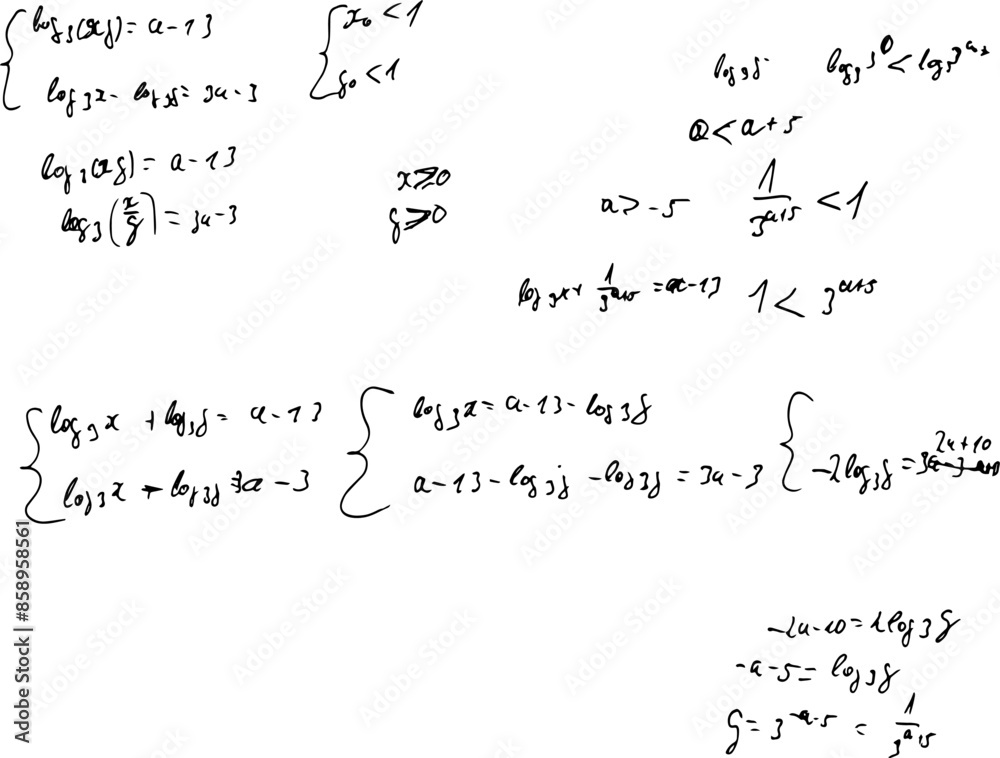 log₃(xy) = a-13
log₃x - log₃y = 3a-3
x₀ < 1
y₀ < 1
log₃y
log₃3⁰ <
0 < a+5
log₃(xy) = a-13
log₃(x/y) = 3a-3
x > 0
y > 0
a > -5
1/3ᵃ⁺⁵ < 1
log₃x + 1/3ᵃ⁺⁵ = a-13
1 < 3ᵃ⁺⁵
log₃x + log₃y = a-13
log₃x - log₃y = 3a-3
log₃x = a-13-log₃y
a-13-log₃y -log₃y = 3a-3
2a+10
-2log₃y =
-2a-10 = 2log₃y
-a-5 = log₃y
y = 3⁻ᵃ⁻⁵ = 1/3ᵃ⁺⁵
Adobe Stock | #858958561